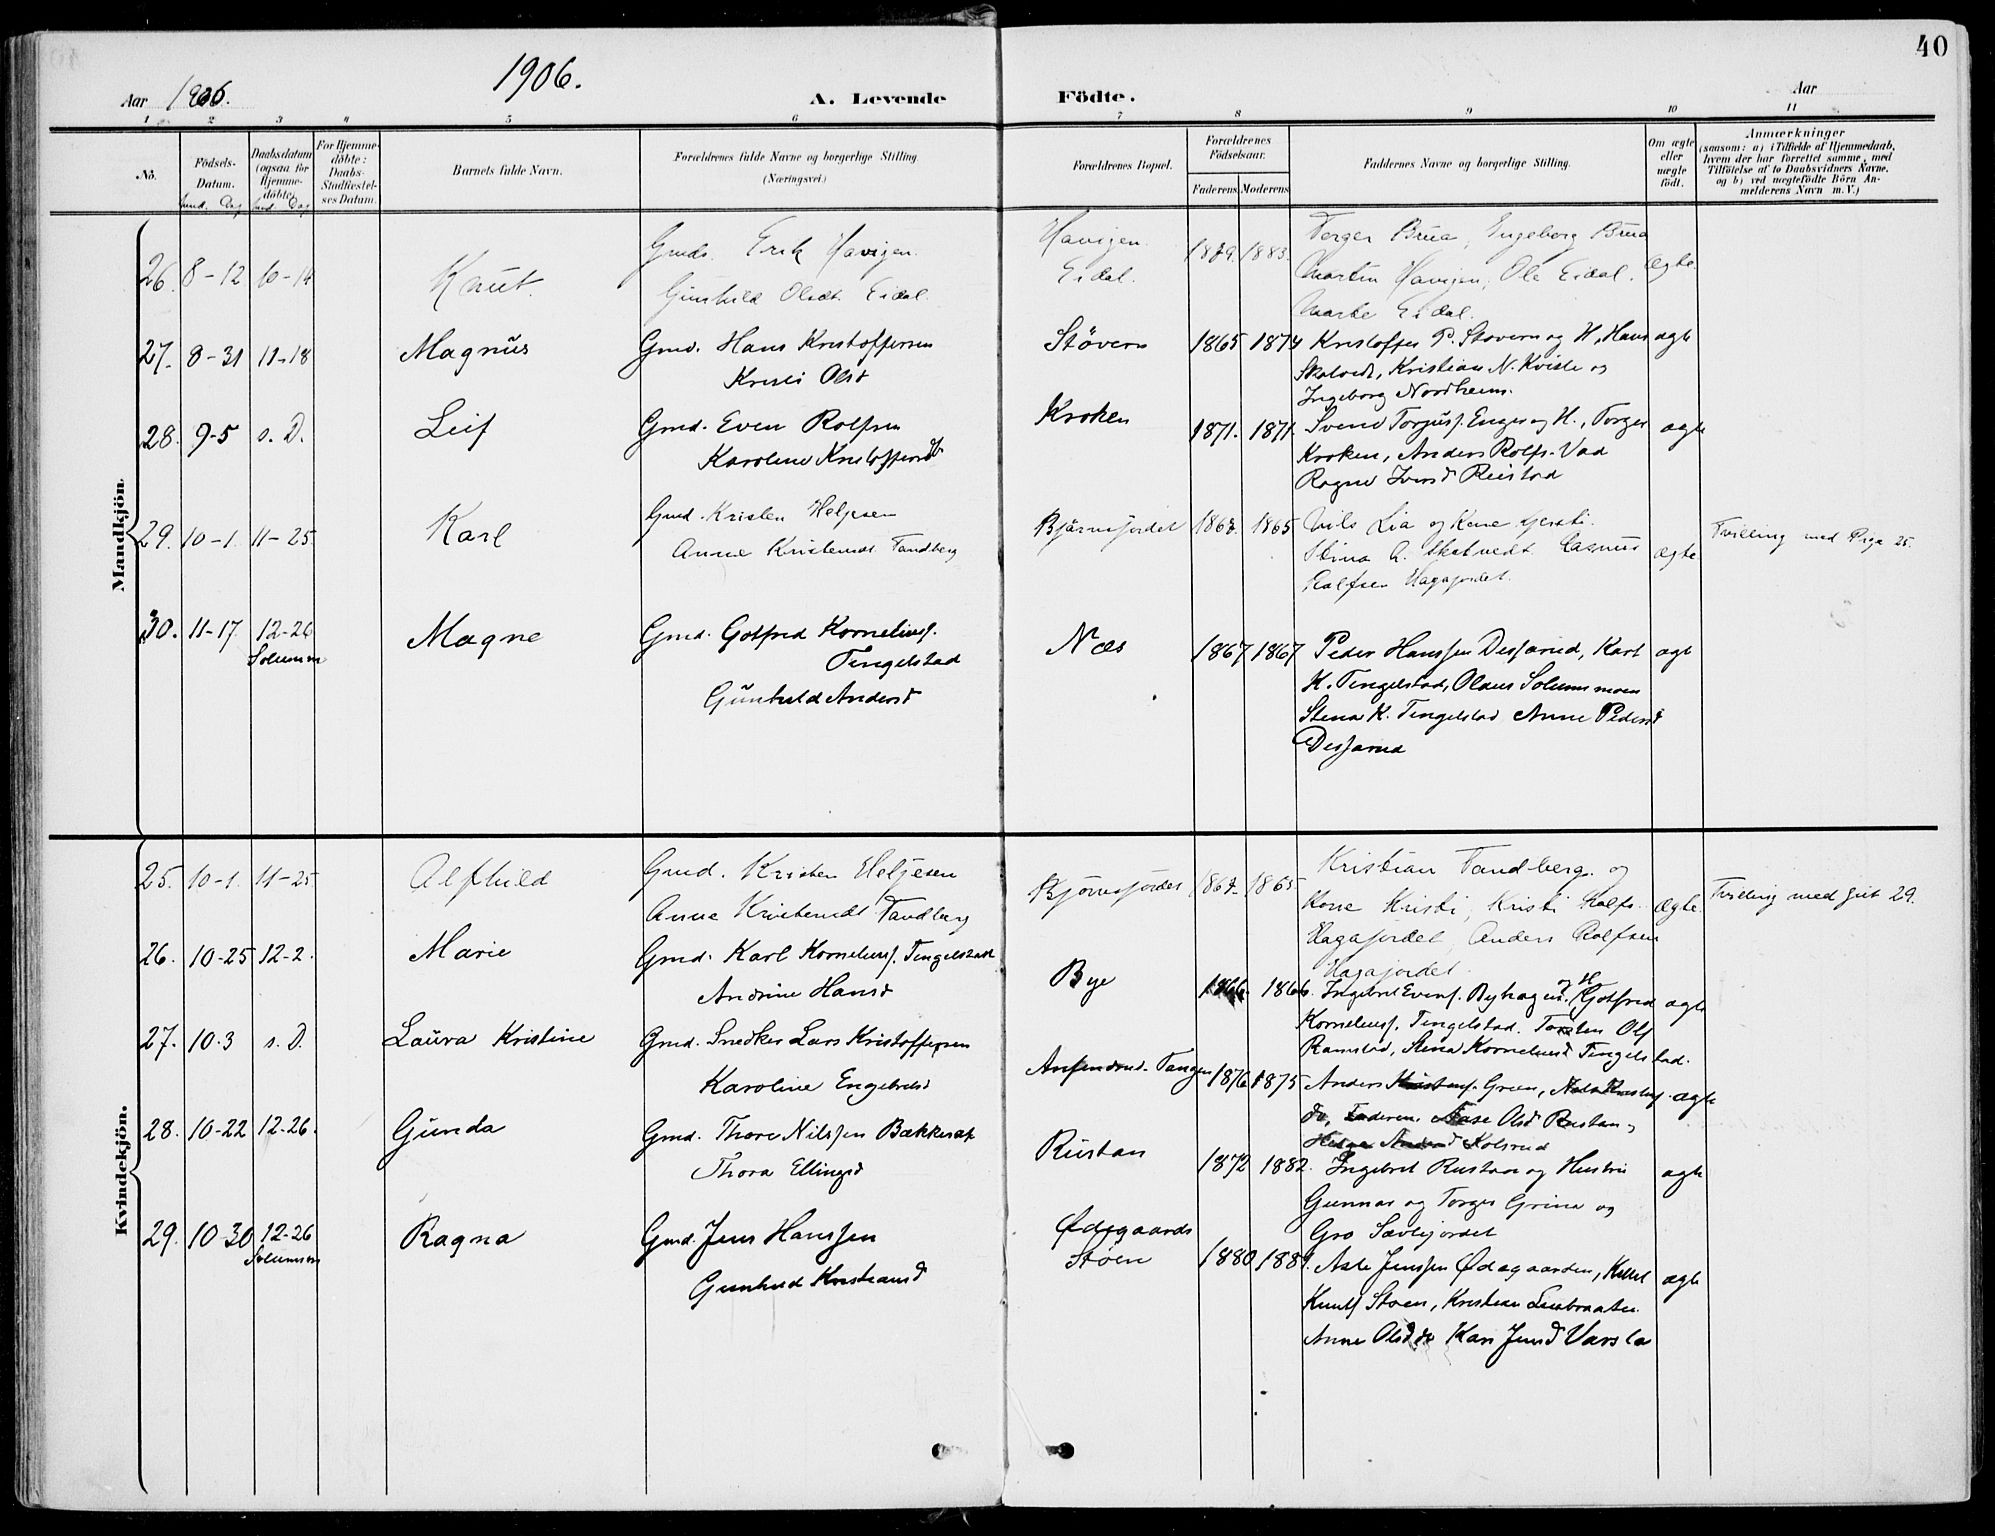 40
1906.
Aar 1906.
A. Levende Födte.
Aar
1 2 3 4 5 6 7 8 9 10 11
No. Födsels-Datum. Daabsdatum (ogsaa for Hjemmedöbte). For Hjemmedöbte: Daabs-Stadfæstelses Datum. Barnets fulde Navn. Forældrenes fulde Navne og borgerlige Stilling. (Næringsvei.) Forældrenes Bopæl. Forældrenes Födselsaar. Faderens Moderens Faddernes Navne og borgerlige Stilling. Om ægte eller uægte födt. Anmærkninger (saasom: a) i Tilfælde af Hjemmedaab, hvem der har forrettet samme, med Tilföielse af to Daabsvidners Navne, og b) ved uægtefödte Börn Anmelderens Navn m. V.)
Mandkjön.
26. 8-12 10-14 Knut. Gmd. Erik Havigen. Havigen 1879. 1883. Torger Brua, Ingeborg Brua Ægte.
Gunhild Olsdt. Eidal. Eidal. Martin Havigen, Ole Eidal.
Marte Eidal.
27. 8-31 11-18 Magnus Gmd. Hans Kristoffersen Støvern 1865 1874 Kristoffer P. Stovern og H, Hans ægte
Kristi Olsd Skatvedt, Kristian N. Kviste og
Ingeborg Nordheim.
28. 9-5 s. D. Leif Gmd. Even Rolfsen Kroken 1871. 1871. Svend Torjusf. Enger og H., Torger ægte
Karoline Kristoffersd Kroken, Anders Rolfs. Vad
Ragne Iversd Rustad
29. 10-1. 11-25. Karl Gmd. Kristen Heljesen Bjørnefjordet 1867. 1865 Nils Lia og Kone Kjersti. Tvilling med Pige 25.
Anne Kristensdt. Tandberg Stina A. Skatvedt. Rasmus ægte
Rolfsen Hagajordet.
30. 11-17. 12-26 Magne Gmd. Gotfred Korneliusf. Næs 1867 1867 Peder Hanssen Desserud, Karl ægte
Solumsm Tingelstad K. Tingelstad, Olaus Solumsmoen
Gunhild Andersd Stena K. Tingelstad Anne Pedersd
Desserud
Kvindekjön.
25. 10-1. 11-25. Alfhild Gmd. Kristen Heljesen Bjørnefjordet 1867. 1865 Kristian Tandberg. og Tvilling med gut 29.
Anne Kristensdt Tandberg Kone Kristi, Kristi Rolfs. Ægte.
Hagajordet, Anders Rolfsen
Hagajordet.
26. 10-25 12-2. Marie Gmd. Karl Korneliusf. Tingelstad. Bye 1866. 1866. Ingebret Evenf. Byhagen. og H Gotfred ægte
Andrine Hansd Korneliusf. Tingelstad. Torsten Olf
Ramstad, Stena Korneliusd Tingelstad.
27. 10.3 s. D. Laura Kristine Gmd. Snedker Lars Kristoffersen Tangen 1876 1875 Anders Green, ægte
Karoline Engebretsd do, Faderen Aase Olsd Rustan,
Kolsrud
28. 10-22 12-26. Gunda Gmd. Thore Nilssen Bækkesæt Rustan 1872 1882. Ingebret Rustan og Hustru ægte
Thora Ellingsd Gunnar og Torger Grina og
Gro Sævlejordet
29. 10-30 12-26 Ragna Gmd. Jens Hanssen Ødegaards 1880 1881. Asle Jenssen Ødegaarden, Kittel ægte
Solumsm Gunhild Kristiansd Støen Knutf Støen, Kristian Lusbraaten.
Anne Olsd do Kari Jensd Varsla